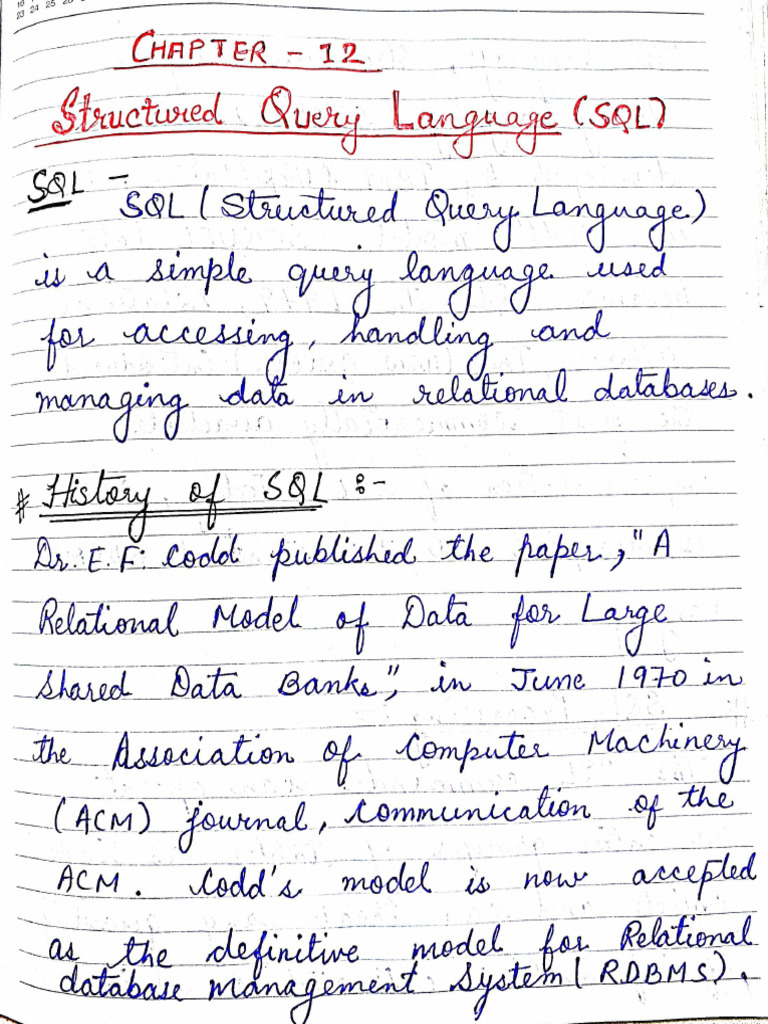 23 24 25
CHAPTER - 12
Structured Query Language (SQL)
SQL -
SQL (Structured Query Language)
is a simple query language used
for accessing, handling and
managing data in relational databases.
# History of SQL :-
Dr. E.F. Codd published the paper, "A
Relational Model of Data for Large
Shared Data Banks", in June 1970 in
the Association of Computer Machinery
(ACM) journal, Communication of the
ACM. Codd's model is now accepted
as the definitive model for Relational
database management System (RDBMS).